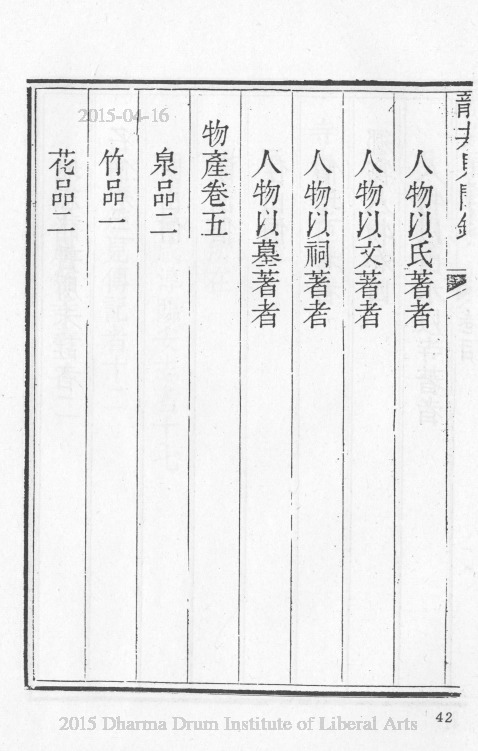 龍井見聞錄
人物以氏著者
人物以文著者
人物以祠著者
人物以墓著者
物產卷五
泉品二
竹品一
花品二
2015-04-16
42
2015 Dharma Drum Institute of Liberal Arts